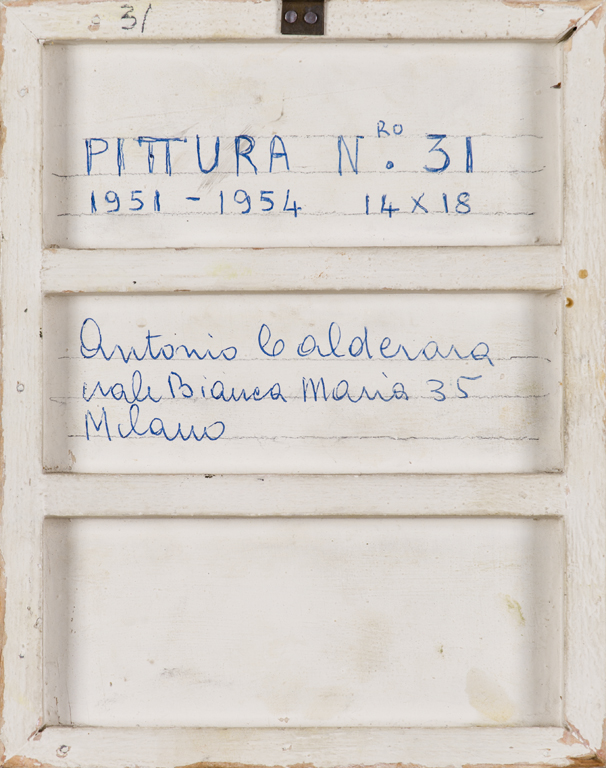 31
PITTURA NRO. 31
1951 - 1954 14 X 18
Antonio Calderara
viale Bianca Maria 35
Milano